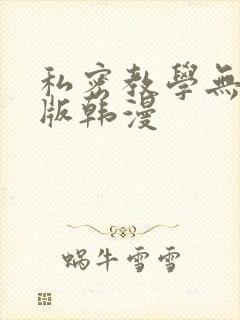 私密教學無
版韩漫
蜗牛雪雪